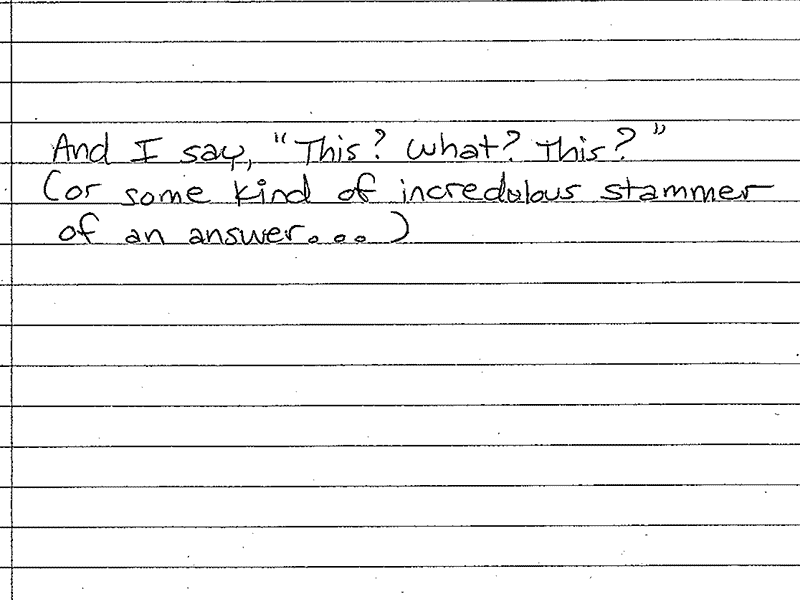 And I say, "This? What? This?"
(or some kind of incredulous stammer
of an answer...)